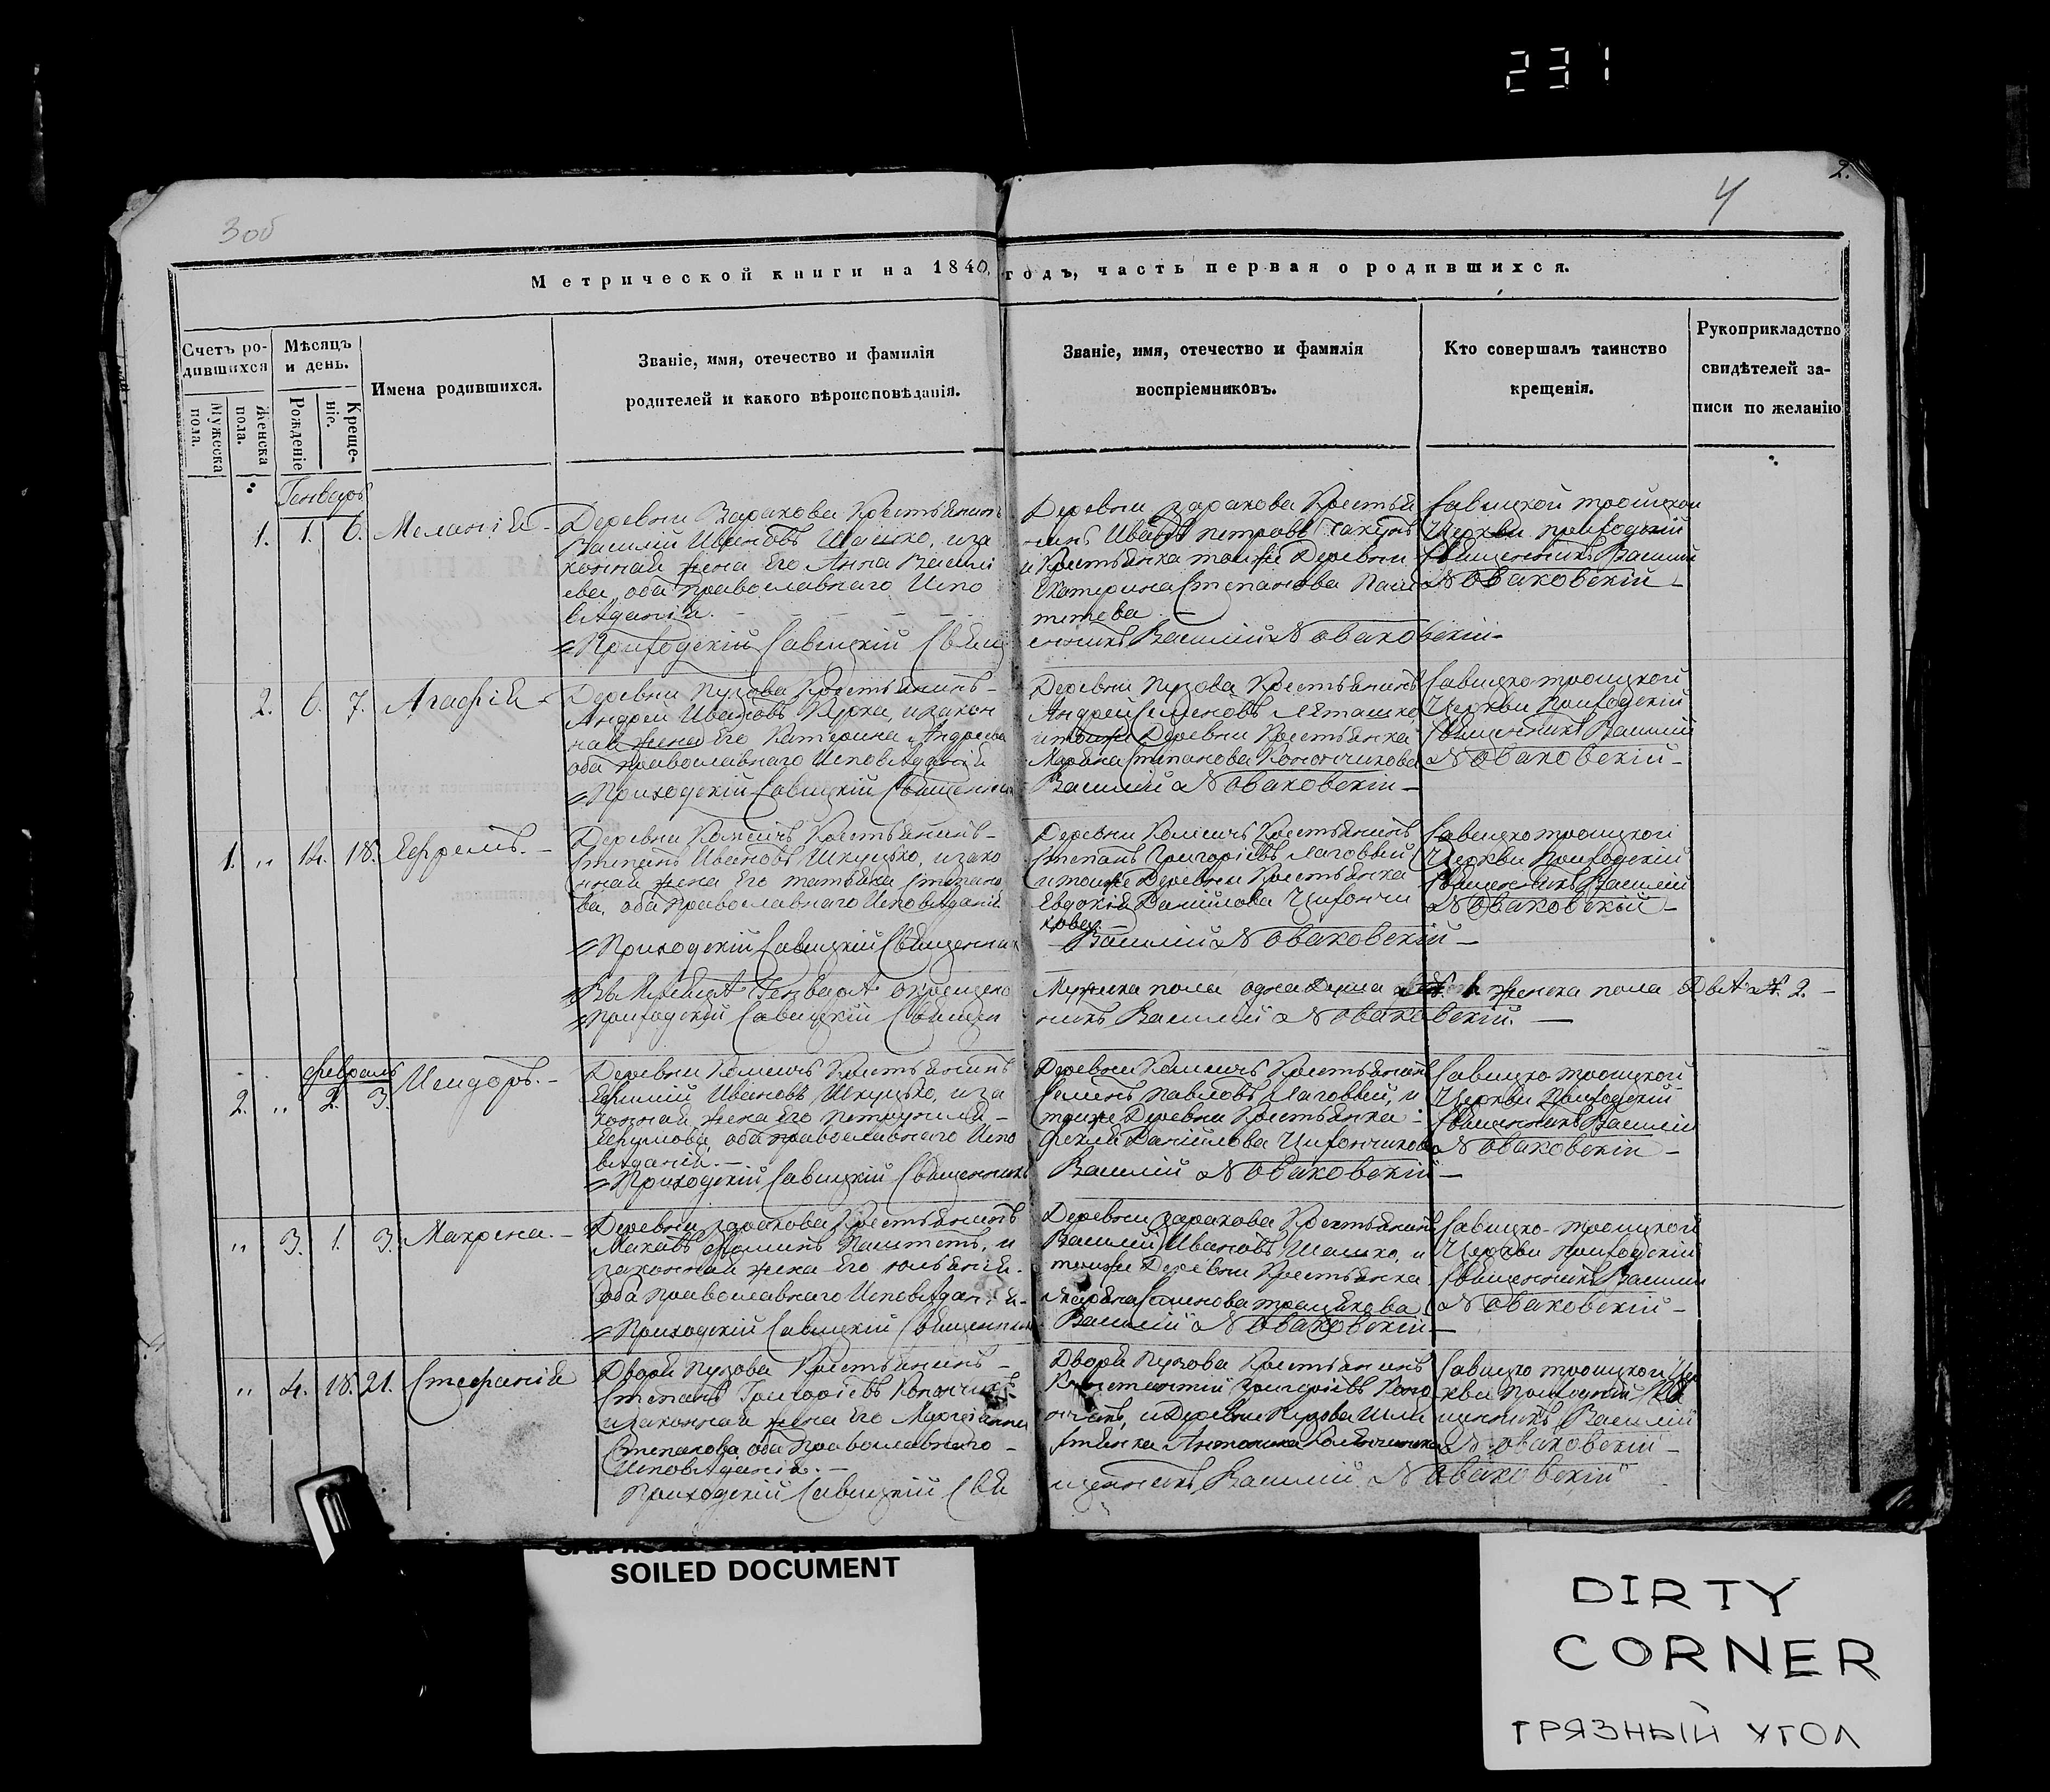 231
2.
4
3 об
Метрической книги на 1840 годъ, часть первая о родившихся.
Счетъ ро-
дившихся
Мужеска пола.
Женска пола.
Мѣсяцъ
и день.
Рожденіе
Креще-
ніе.
Имена родившихся.
Званіе, имя, отечество и фамилія
родителей и какого вѣроисповѣданія.
Званіе, имя, отечество и фамилія
воспріемниковъ.
Кто совершалъ таинство
крещенія.
Рукоприкладство
свидѣтелей за-
писи по желанію
Генварь
1. 1. 6. Меланія
Деревни Заракова Крестьянинъ
Василій Ивановъ Шашко, и за
конная жена Его Анна Васил
ева, оба православнаго Испо
вѣданія.
Приходскій Савицкій Свящ
Деревни Заракова Крестья
нинъ Иванъ Петровъ
и Крестьянка тойже Деревни
Екатерина Степанова Паш
тетова
енникъ Василій Новаковскій
Савицкой троицкой
Церкви приходскій
Священникъ Василій
Новаковскій
2. 6. 7. Агафія
Деревни Пузова Крестьянинъ
Андрей Ивановъ Курка, и закон
ная жена Его Катерина Андреева
оба православнаго Исповѣданія
Приходскій Савицкій Священникъ
Деревни Пузова Крестьянинъ
Андрей Семеновъ
и тойже Деревни Крестьянка
Марьяна Степанова Конончикова
Василій Новаковскій
Савицко троицкой
Церкви Приходскій
Священникъ Василій
Новаковскій
1. " 14. 18. Ефремъ.
Деревни Крестьянинъ
Степанъ Ивановъ Шкуцько, и зако
нная жена Его татьяна Степано
ва, оба Православнаго Исповѣданія
Приходскій Савицкій Священник
Деревни Крестьянинъ
Степанъ Григоріевъ Лаговый
и тойже Деревни Крестьянка
Евдокія Данилова Цихончи
кова
Василій Новаковскій
Савицко троицкой
Церкви Приходскій
Священникъ Василій
Новаковскій
Въ Мѣсяцѣ Генварѣ окрещено
Мужеска пола одна Душа № 1. женска пола Двѣ № 2.
Приходскій Савицкій Священ
никъ Василій Новаковскій.
февраль
2. " 2. 3. Исидоръ.
Деревни Крестьянинъ
Ефимій Ивановъ Шкуцько, и за
конная жена Его
оба православнаго Испо
вѣданія.
Приходскій Савицкій Священникъ
Деревни Крестьянинъ
Семенъ Павловъ Лаговый, и
тойже Деревни Крестьянка
Данійлова Цихончикова
Василій Новаковскій
Савицко троицкой
Церкви Приходскій
Священникъ Василій
Новаковскій
" 3. 1. 3. Макрена.
Деревни Заракова Крестьянинъ
Паштетъ, и
законная жена Его Юльянія.
Оба Православнаго Исповѣданія
Приходскій Савицкій Священник
Деревни Заракова Крестьянинъ
Василій Ивановъ Шашко, и
тойже Деревни Крестьянка
Марьяна Семенова
Василій Новаковскій
Савицко-троицкой
Церкви Приходскій
Священникъ Василій
Новаковскій
" 4. 18. 21. Стефанія
Двора Пузова Крестьянинъ
Степанъ Григоріевъ Конончикъ
и законная жена Его Марьянна
Степанова оба Православнаго
Исповѣданія.
Приходскій Савицкій Свя
Двора Пузова Крестьянинъ
Григоріевъ Коно
нчикъ, и Деревни Пузова Шля
хтянка
щенникъ Василій Новаковскій
Савицко троицкой Цер
кви Приходскій Свя
щенникъ Василій
Новаковскій
SOILED DOCUMENT
DIRTY
CORNER
ГРЯЗНЫЙ УГОЛ